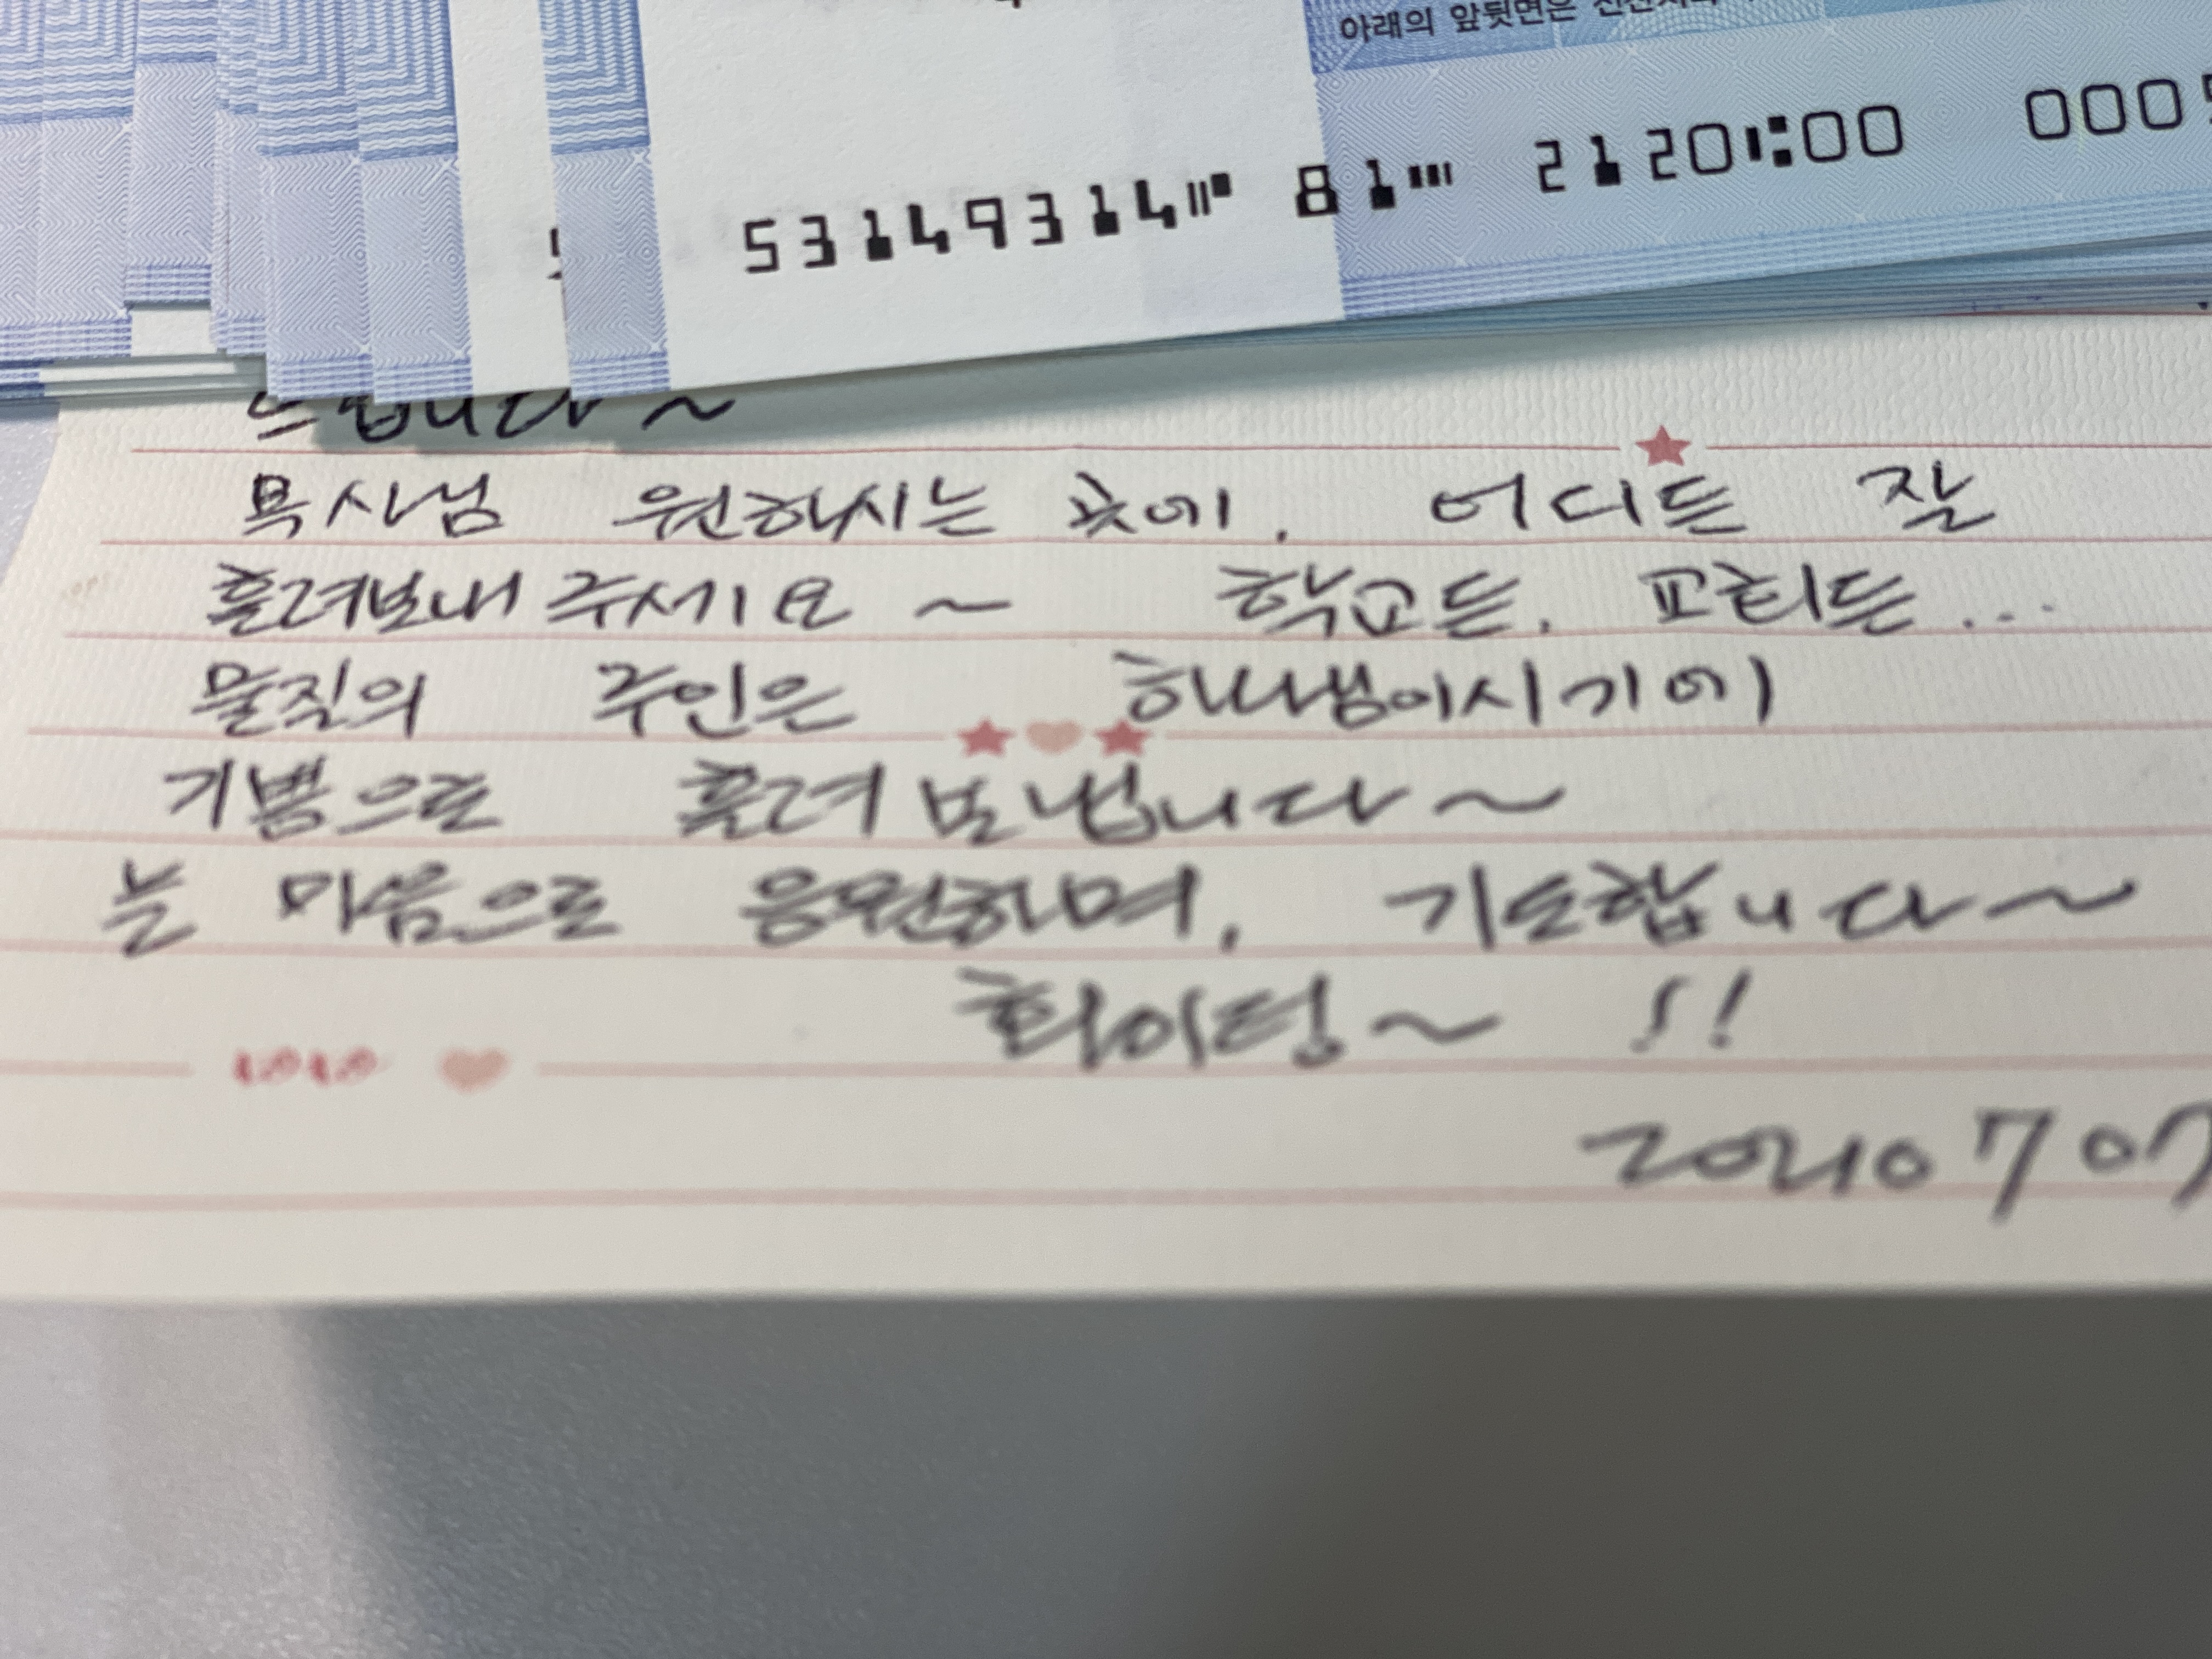 아래의 앞뒷면은
53149314⑈ 81⑈ 2120⑆00 000
드립니다~
목사님 원하시는 곳에. 어디든 잘
흘려보내 주세요~ 학교든. 교회든...
물질의 주인은 하나님이시기에
기쁨으로 흘려 보냅니다~
늘 마음으로 응원하며, 기도합니다~
화이팅~ !!
20210707